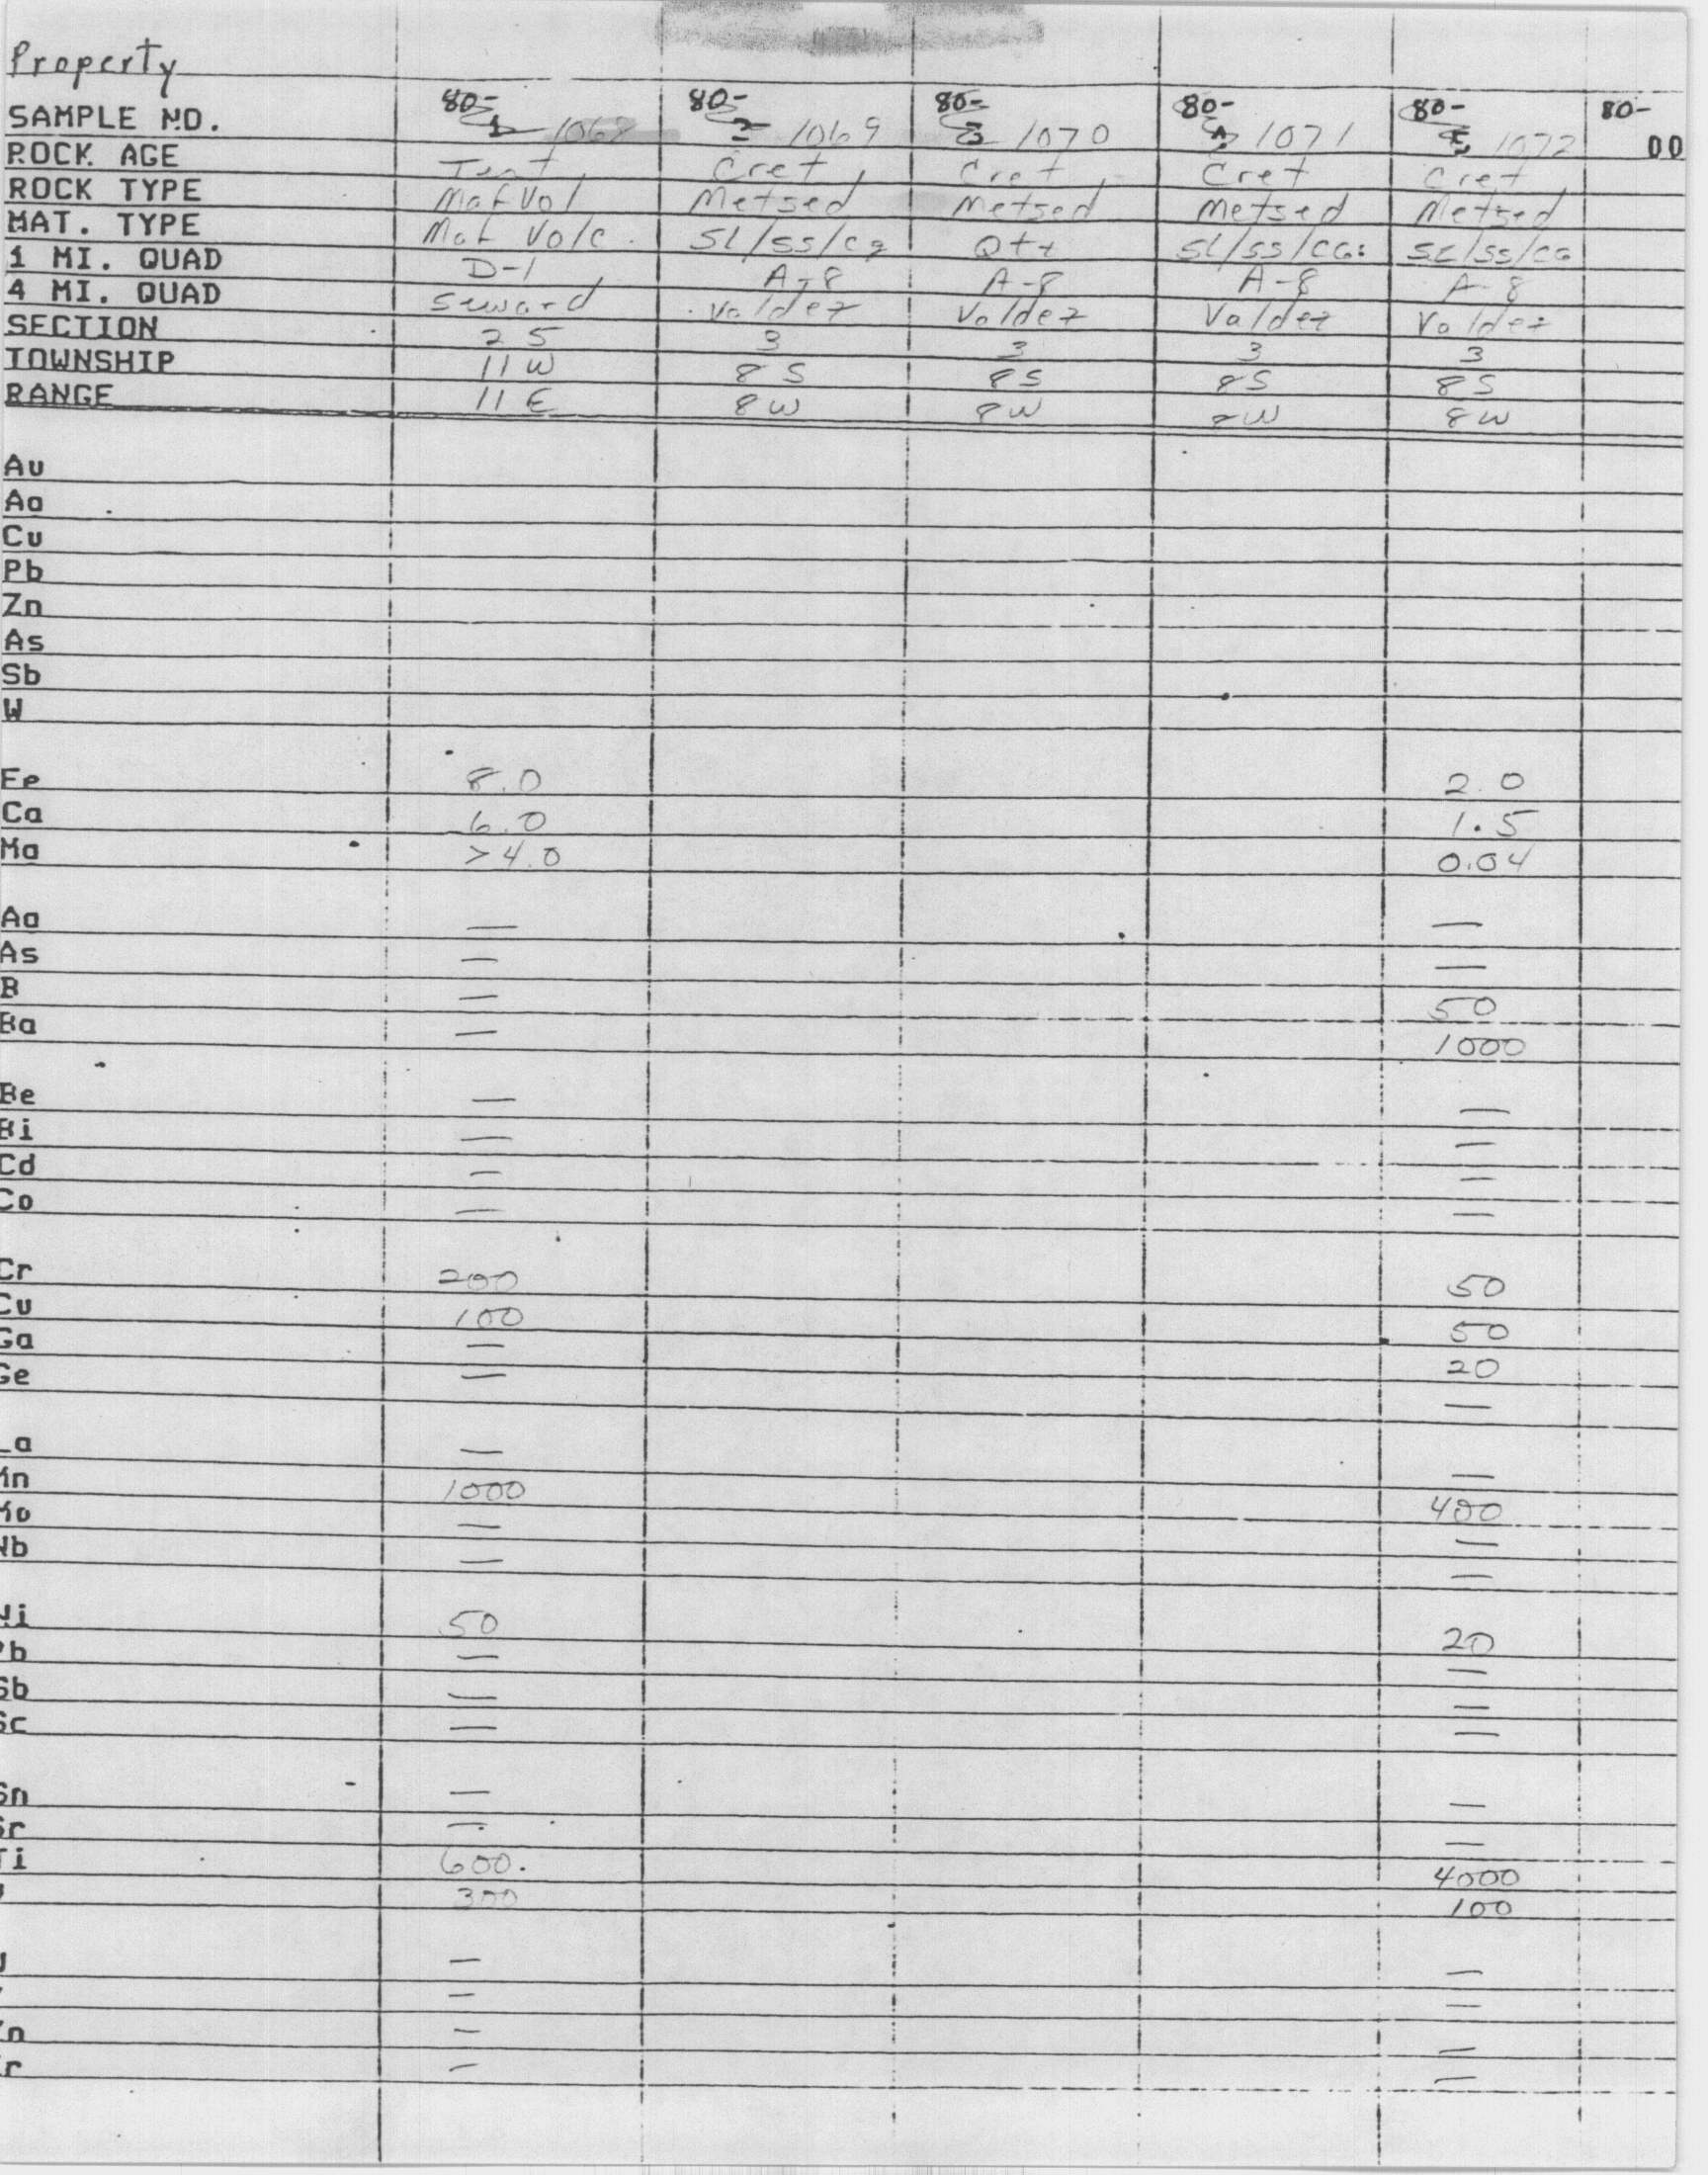 Property
80- 80- 80- 80- 80- 80-
SAMPLE NO. 1068 1069 1070 1071 1072 00
ROCK AGE Tert Cret Cret Cret Cret
ROCK TYPE Maf Vol Metsed Metsed Metsed Metsed
MAT. TYPE Maf Volc. SL/SS/Cg Qtz SL/SS/CG SL/SS/CG
1 MI. QUAD D-1 A-8 A-8 A-8 A-8
4 MI. QUAD Seward Valdez Valdez Valdez Valdez
SECTION 25 3 3 3 3
TOWNSHIP 11W 8S 8S 8S 8S
RANGE 11E 8W 8W 8W 8W
Au
Ag
Cu
Pb
Zn
As
Sb
W
Fe 8.0 2.0
Ca 6.0 1.5
Mg >4.0 0.04
Ag — —
As — —
B — 50
Ba — 1000
Be — —
Bi — —
Cd — —
Co — —
Cr 200 50
Cu 100 50
Ga — 20
Ge — —
La — —
Mn 1000 400
Mo — —
Nb — —
Ni 50 20
Pb — —
Sb — —
Sc — —
Sn — —
Sr — —
Ti 600. 4000
300 100
— —
— —
Zn — —
Zr — —